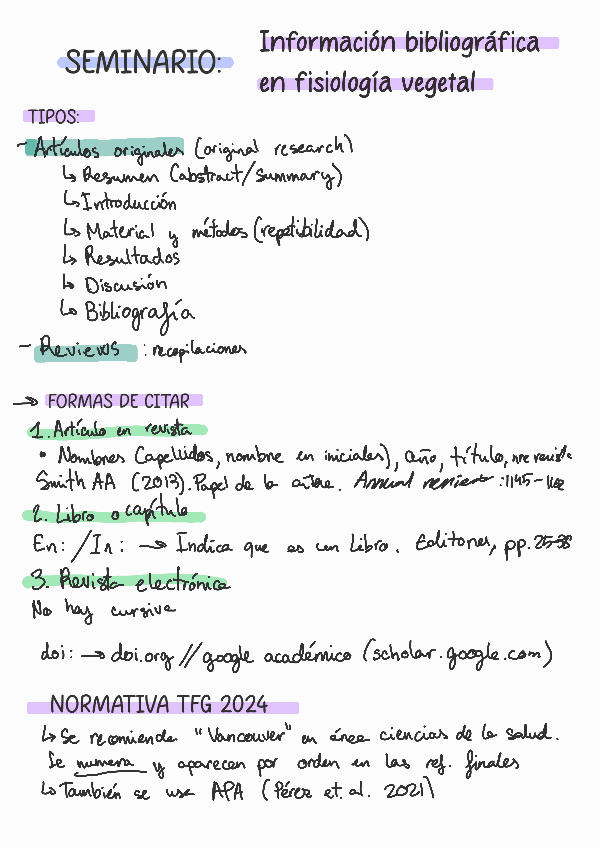 SEMINARIO:
Información bibliográfica
en fisiología vegetal
TIPOS:
- Artículos originales (original research)
↳ Resumen (abstract/summary)
↳ Introducción
↳ Material y métodos (repetibilidad)
↳ Resultados
↳ Discusión
↳ Bibliografía
- Reviews : recopilaciones
→ FORMAS DE CITAR
1. Artículo en revista
• Nombres (apellidos, nombre en iniciales), año, título, nre revista
Smith AA (2013). Papel de la :1145-
2. Libro o capítulo
En: / In: → Indica que es un libro. Editores, pp. 25-38
3. Revista electrónica
No hay cursiva
doi: → doi.org // google académico (scholar.google.com)
NORMATIVA TFG 2024
↳ Se recomienda "Vancouver" en área ciencias de la salud.
Se numera y aparecen por orden en las ref. finales
↳ También se usa APA (Pérez et. al. 2021)